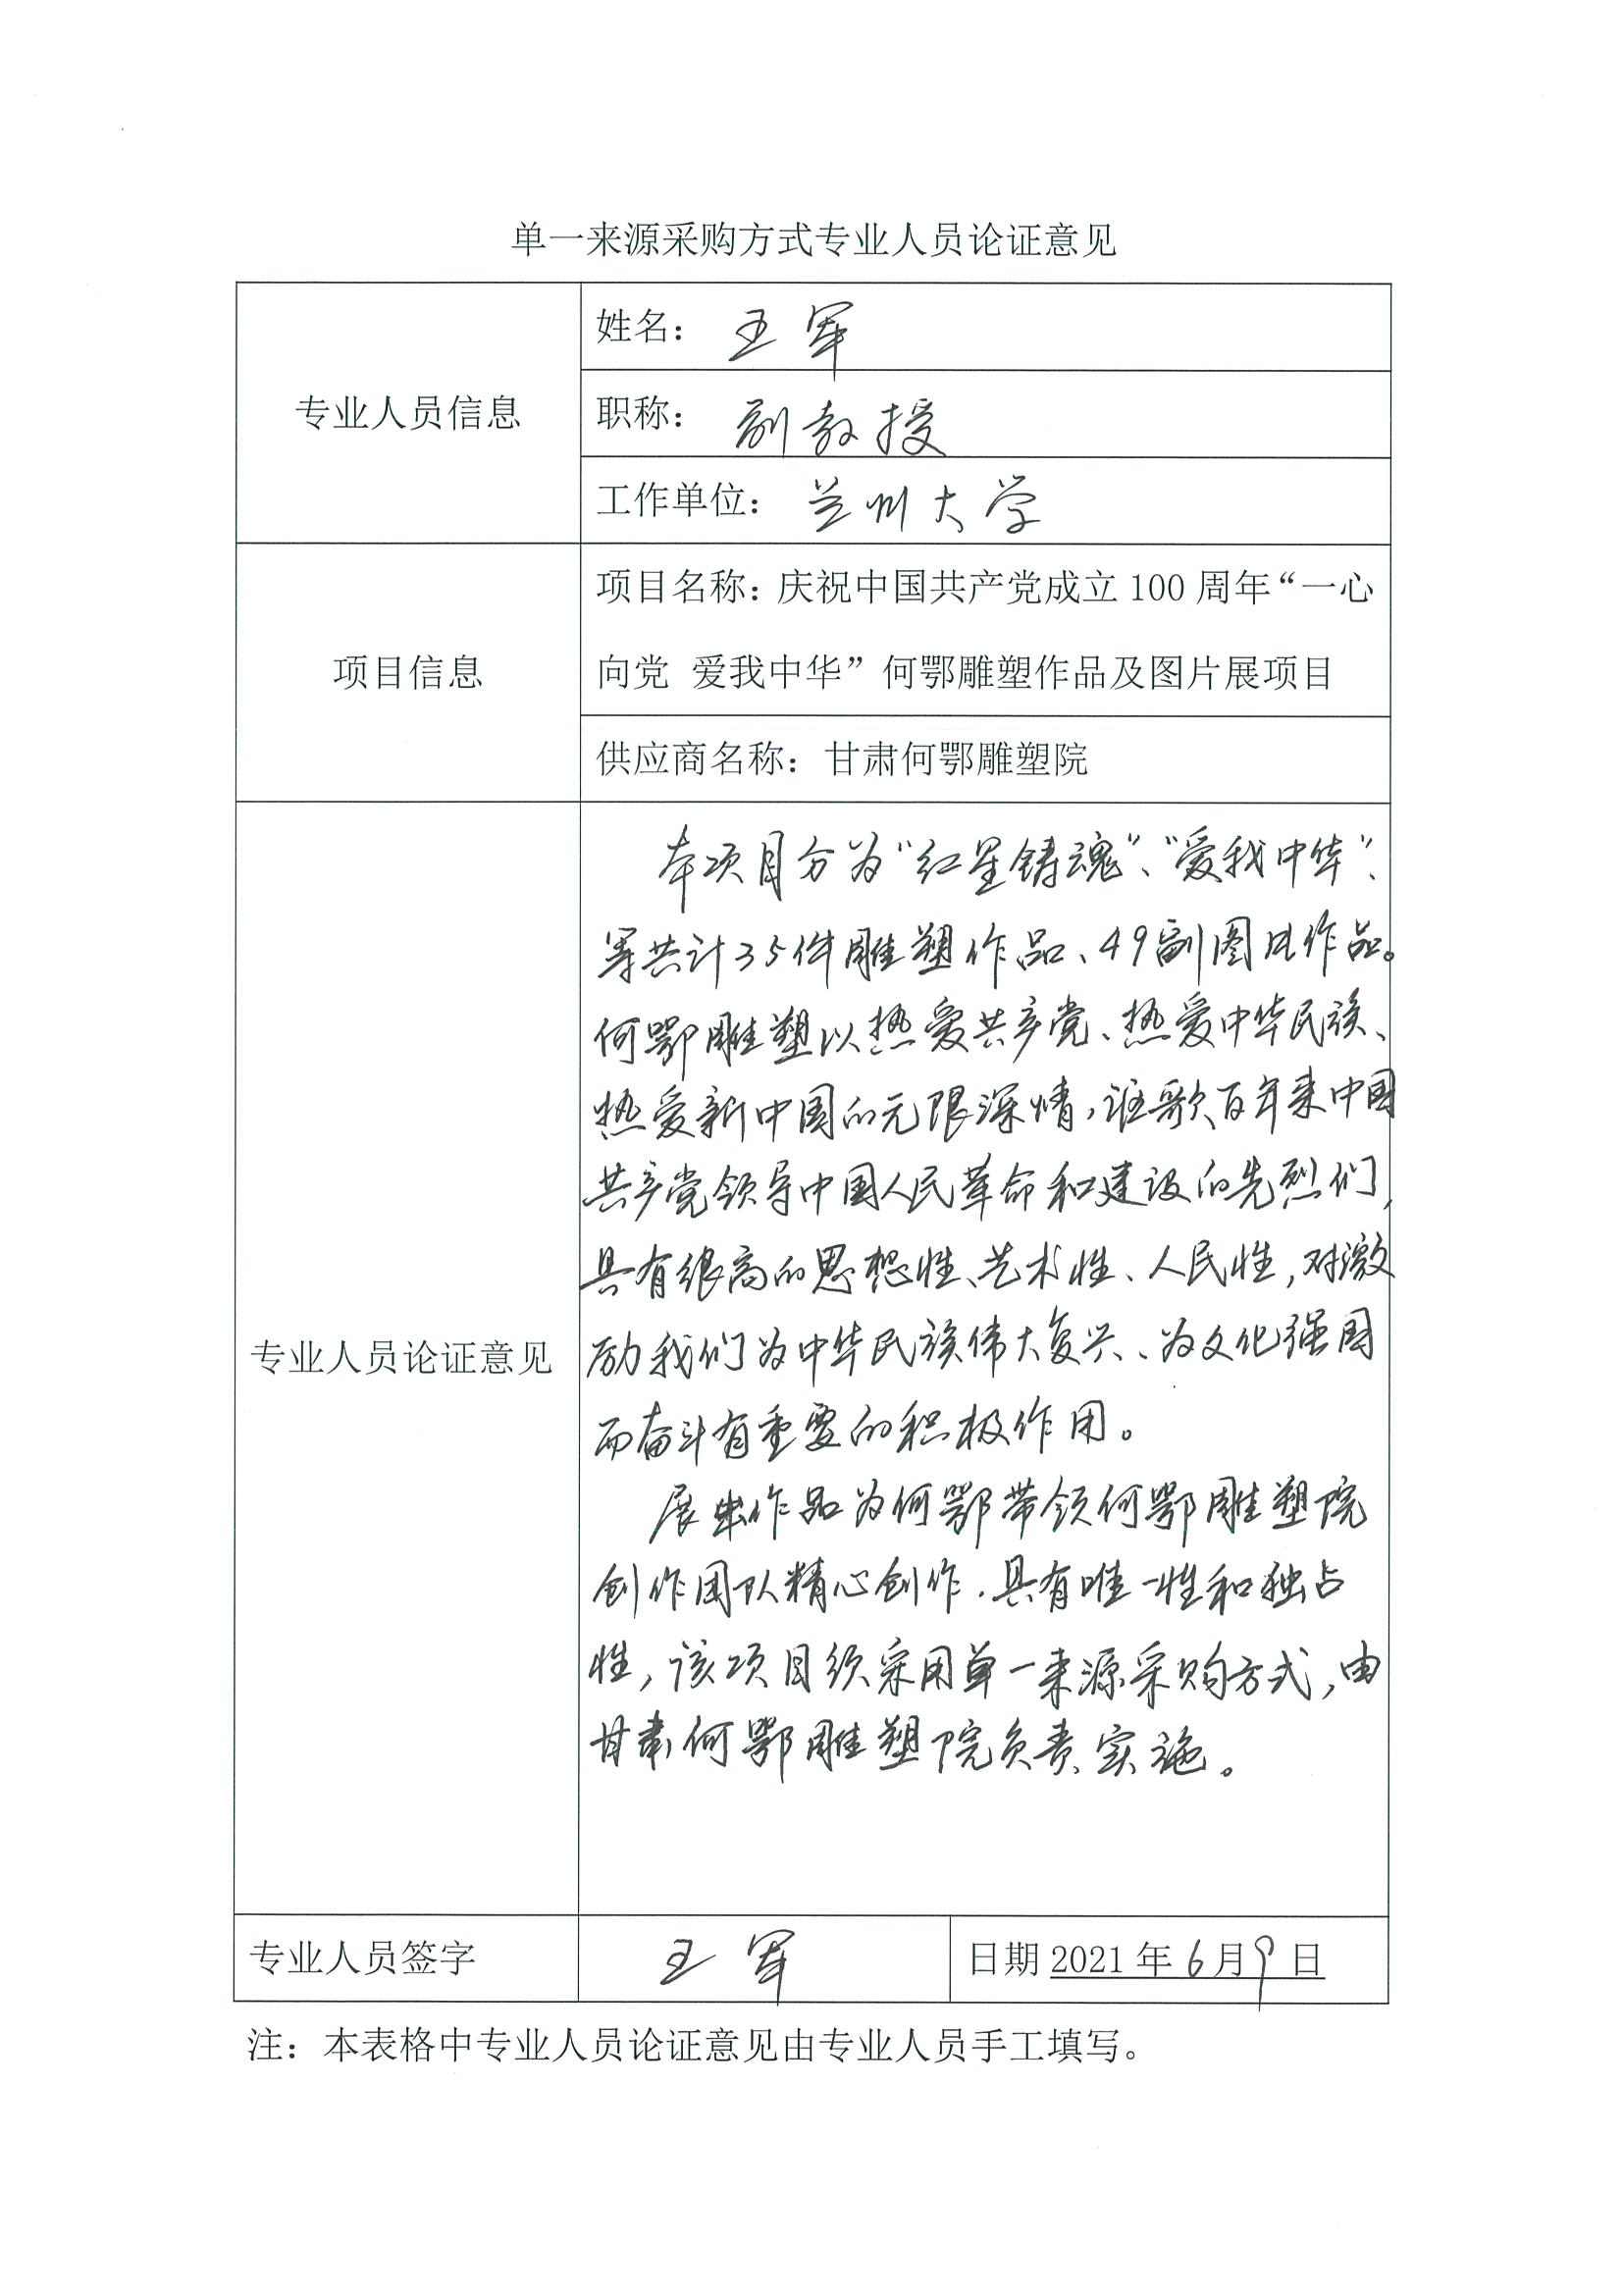 单一来源采购方式专业人员论证意见
专业人员信息
姓名：王军
职称：副教授
工作单位：兰州大学
项目信息
项目名称：庆祝中国共产党成立 100 周年“一心
向党 爱我中华”何鄂雕塑作品及图片展项目
供应商名称：甘肃何鄂雕塑院
专业人员论证意见
本项目分为“红星铸魂”、“爱我中华”、
等共计35件雕塑作品、49副图片作品。
何鄂雕塑以热爱共产党、热爱中华民族、
热爱新中国的无限深情，讴歌百年来中国
共产党领导中国人民革命和建设的先烈们，
具有很高的思想性、艺术性、人民性，对激
励我们为中华民族伟大复兴、为文化强国
而奋斗有重要的积极作用。
展出作品为何鄂带领何鄂雕塑院
创作团队精心创作，具有唯一性和独占
性，该项目须采用单一来源采购方式，由
甘肃何鄂雕塑院负责实施。
专业人员签字
王军
日期 2021 年 6 月 9 日
注：本表格中专业人员论证意见由专业人员手工填写。